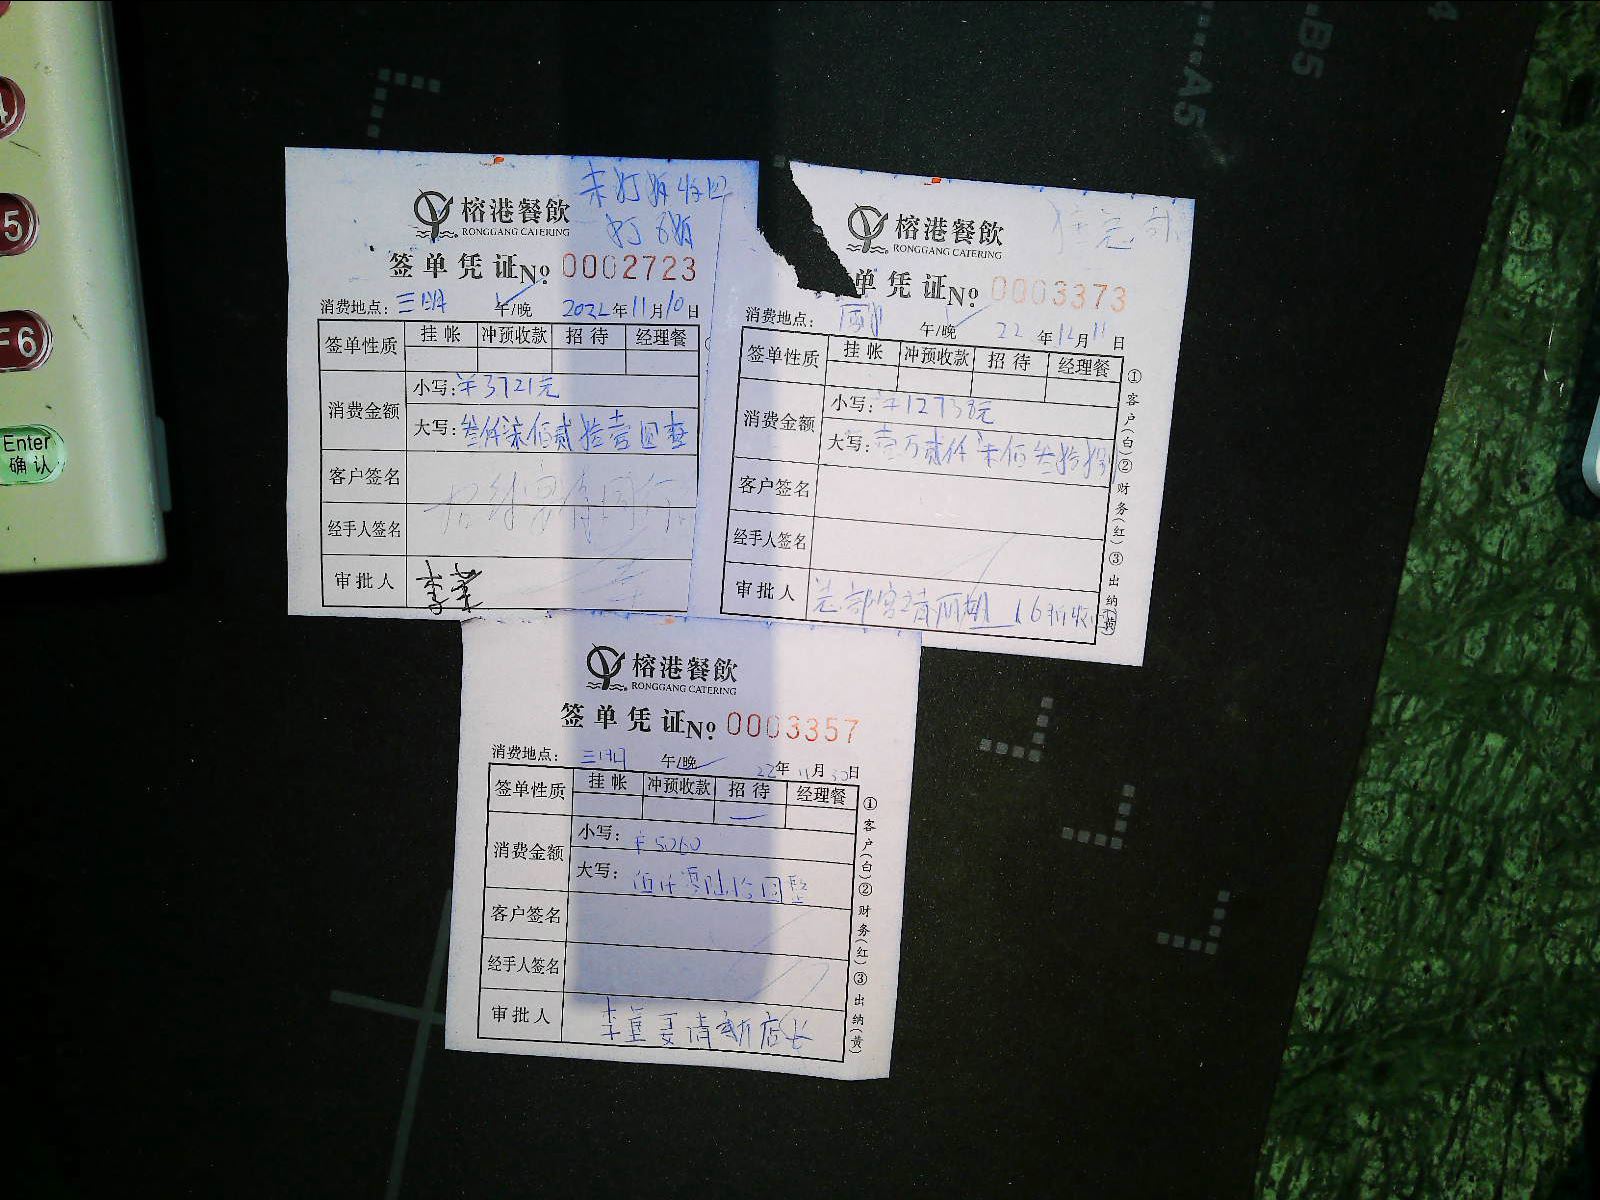 榕港餐飲
RONGGANG CATERING
打6折
签单凭证 No: 0002723
消费地点: 三明 午/晚 2022年11月10日
签单性质 挂帐 冲预收款 招待 经理餐
消费金额 小写: ¥3721元
大写: 叁仟柒佰贰拾壹圆整
客户签名
经手人签名
审批人
榕港餐飲
RONGGANG CATERING
单凭证 No: 0003373
消费地点: 午/晚 22年12月11日
签单性质 挂帐 冲预收款 招待 经理餐
消费金额 小写: ¥12738元
大写: 壹万贰仟柒佰叁拾捌
客户签名
经手人签名
审批人
①客户(白)②财务(红)③出纳(黄)
榕港餐飲
RONGGANG CATERING
签单凭证 No: 0003357
消费地点: 三明 午/晚 22年11月30日
签单性质 挂帐 冲预收款 招待 经理餐
消费金额 小写: ¥5060
大写: 伍仟零陆拾圆整
客户签名
经手人签名
审批人
①客户(白)②财务(红)③出纳(黄)
4
5
F6
Enter
确认
A5
B5